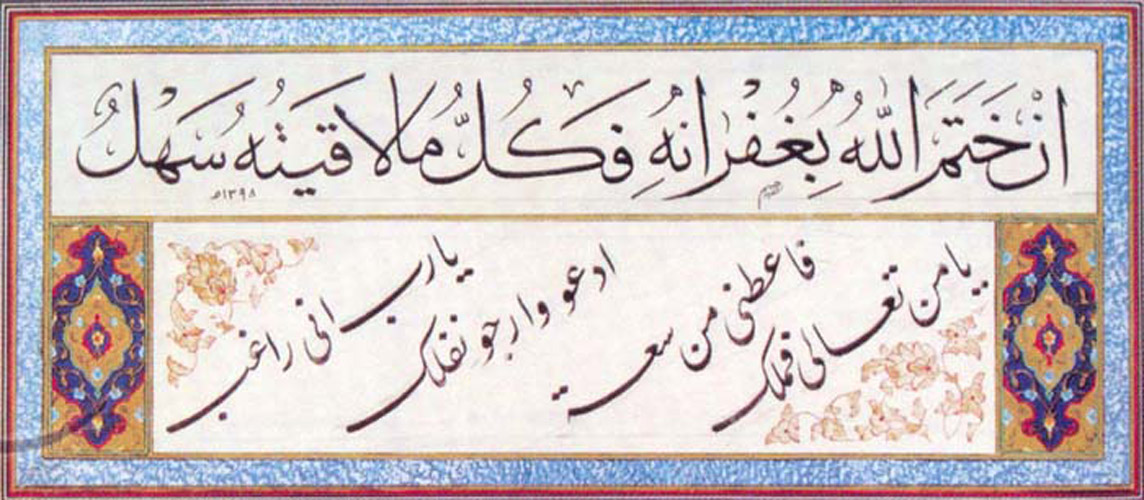 اِنْ خَتَمَ اللهُ بِغُفْرانِهِ فَكُلُّ مَا لاقَيتُهُ سَهْلُ
١٣٩٨هـ
يا من تعالى فملك
فاعطنى من سعة
ادعو وارجو نفلك
يارب انى راغب